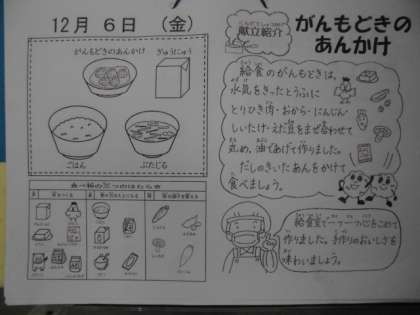 12月 6日 (金)
がんもどきのあんかけ
ぎゅうにゅう
ごはん
ぶたじる
献立紹介
がんもどきの
あんかけ
給食のがんもどきは、
水気をきったとうふに
とりひき肉・おから・にんじん・
しいたけ・えだ豆をまぜ合わせて
丸め、油であげて作りました。
だしのきいたあんをかけて
食べましょう。
給食室で一つ一つ心をこめて
作りました。手作りのおいしさを
味わいましょう。